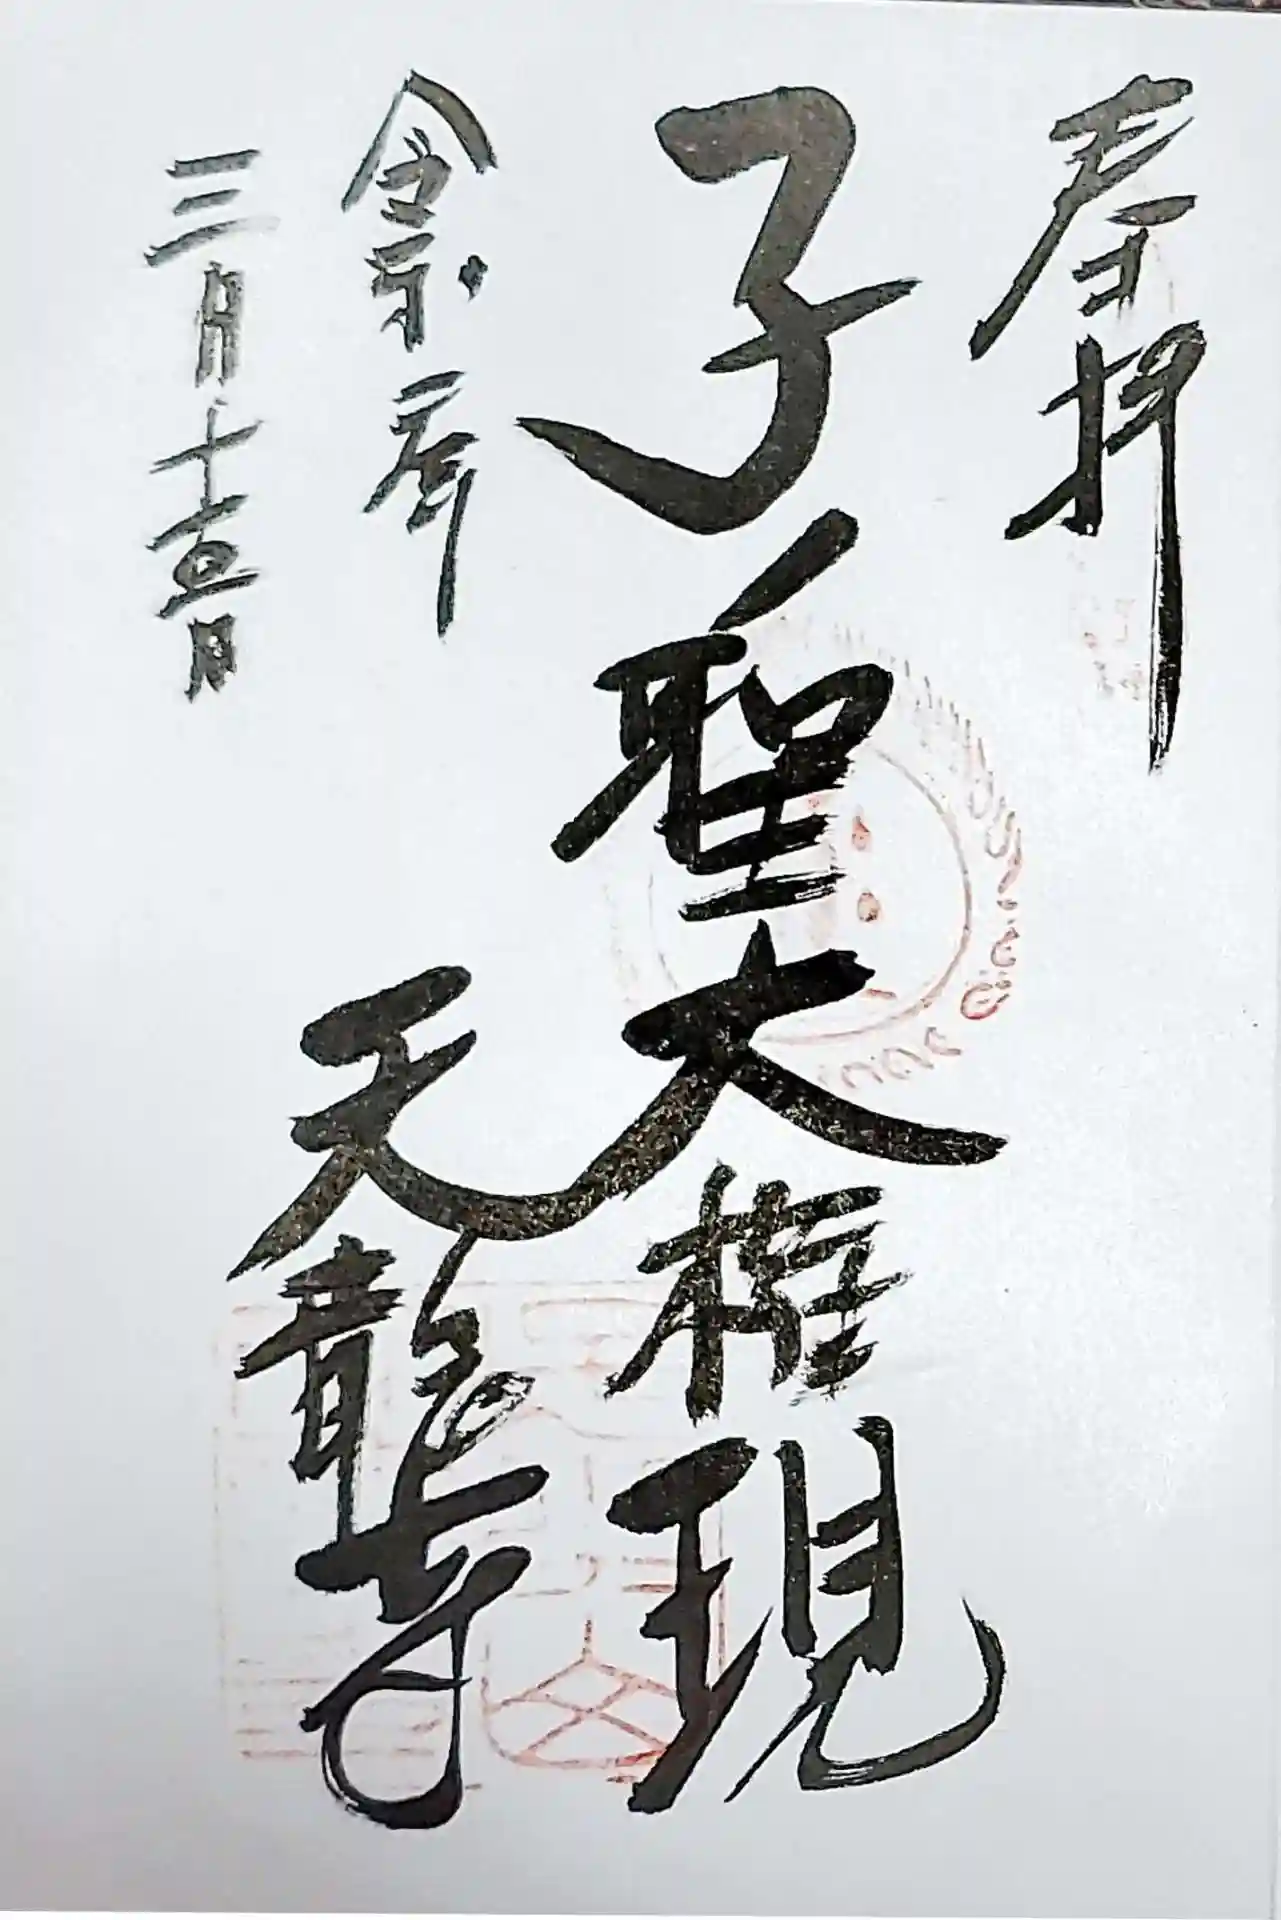 奉拝
子ノ聖大権現
天龍寺
令和二年
三月十五日